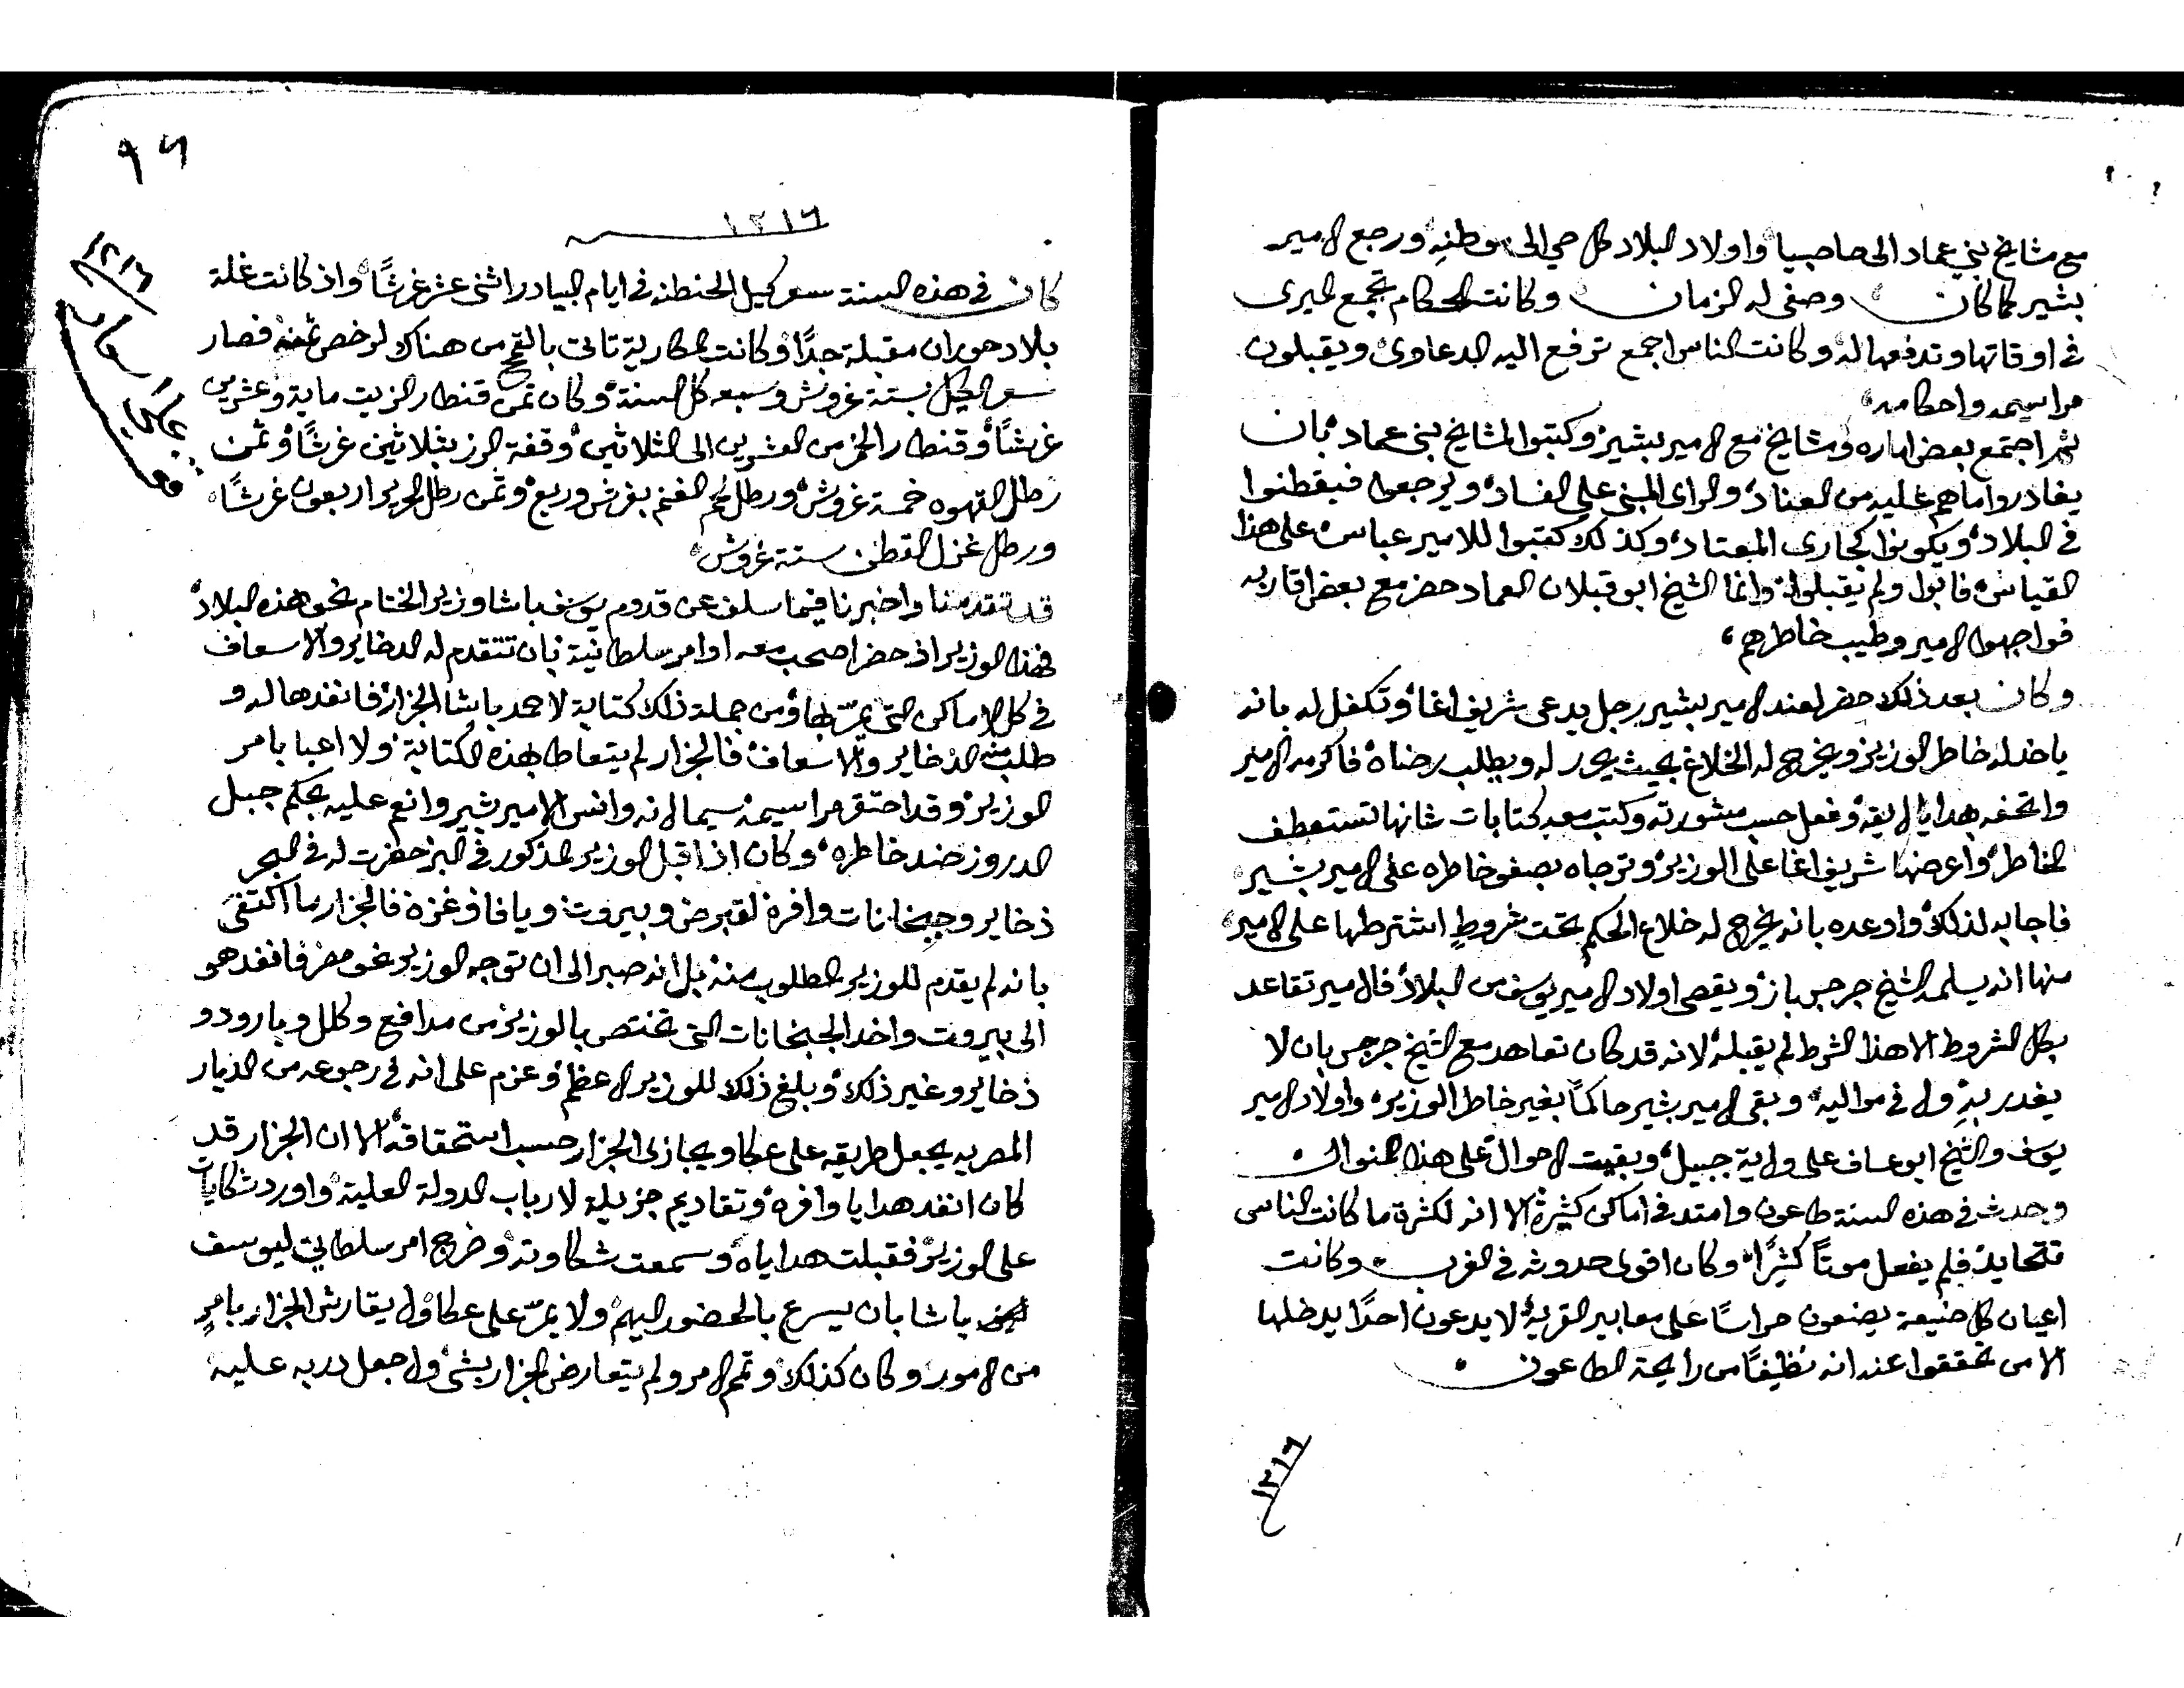 مع مشايخ بني عماد الى حاصبيا واولاد البلاد كل حي الى موطنهِ ورجع الامير
بشير كما كان وصفى له الزمان وكانت الحكام تجمع الميرى
في اوقاتها وتدفعها له وكانت الناس اجمع ترفع اليه الدعاوى ويقبلون
مراسيمه واحكامه
ثم اجتمع بعض اماره ومشايخ مع الامير بشير وكتبوا المشايخ بني عماد بان
يغادروا ما هم عليه من العناد والراى المبني على الفساد ويرجعوا فيقطنوا
في البلاد ويكونوا كجارى المعتاد وكذلك كتبوا للامير عباس على هذا
القياس فابوا ولم يقبلوا وانما الشيخ ابو قبلان العماد حضر مع بعض اقاربه
فواجهوا الامير وطيب خاطرهم
وكان بعد ذلك حضر لعند الامير بشير رجل يدعى شريف اغا وتكفل له بانه
ياخد له خاطر الوزير ويخرج له الخلاع بحيث يحرر له ويطلب رضاه فاكرمه الامير
واتحفه بهدايا لايقه وفعل حسب مشورته وكتب معه كتابات شانها تستعطف
الخاطر واعرضها شريف اغا على الوزير وترجاه بصفو خاطره على الامير بشير
فاجابه لذلك واوعده بانه يخرج له خلاع الحكم تحت شروطٍ اشترطها على الامير
منها انه يسلمه الشيخ جرجس باز ويقصى اولاد الامير يوسف من البلاد فالامير تقاعد
بكل الشروط الا هذا الشرط لم يقبله لانه قد كان تعاهد مع الشيخ جرجس بان لا
يغدر بهِ ولا في مواليه وبقى الامير بشير حاكماً بغير خاطر الوزير واولاد الامير
يوسف والشيخ ابو عساف على ولاية جبيل وبقيت الاحوال على هذا المنوال
وحدث في هذه السنة طاعون وامتد في اماكن كثيرة الا انه لكثرة ما كانت الناس
تتحايده فلم يفعل موتاً كثيرًا وكان اقوى حدوثه في الغرب وكانت
اعيان كل ضيعة يضعون حراسًا على معابير القرية لا يدعون احدًا يدخلها
الا من تحققوا عنه انه نظيفًا من رايحة الطاعون
١٢١٦
٩٦
١٢١٦
١٢١٦
كان في هذه السنة سعر كيل الحنطه في ايام البيادر اثنى عشر غرشًا واذ كانت غلة
بلاد حوران مقبلة جدًا وكانت المكارية تاتى بالقمح من هناك لرخص ثمنه فصار
سعر الكيل بستة غروش وسبعه كل السنة وكان ثمن قنطار الزيت ماية وعشرين
غرشًا وقنطار الخمر من العشرين الى الثلاثين وقفة الرز بثلاثين غرشًا وثمن
رطل القهوه خمسة غروش ورطل لحم الغنم بغرش وربع وثمن رطل الحرير اربعون غرشًا
ورطل غزل القطن ستة غروش
قد تقدمنا واخبرنا فيما سلف عن قدوم يوسف باشا وزير الختام نحو هذه البلاد
فهذا الوزير اذ حضر اصحب معه اوامر سلطانية بان تتقدم له الدخاير والاسعاف
في كل الاماكن التي يمرّ بها ومن جملة ذلك كتابة لاحمد باشا الجزار فانفدها له و
طلب منه الذخاير والاسعاف فالجزار لم يتعاطا بهذه الكتابة ولا اعبا بامر
الوزير وقد احتقر مراسيمه سيما لانه وانس الامير بشير وانعم عليه بحكم جبل
الدروز ضد خاطره وكان اذ اقبل الوزير المذكور في البر حضرت له في البحر
ذخاير وجبخانات وافرة لقبرص وبيروت ويافا وغزة فالجزار ما اكتفى
بانه لم يقدم للوزير المطلوب منه بل انه صبر الى ان توجه الوزير نحو مصر فانفد هو
الى بيروت واخد الجبخانات التي تختص بالوزير من مدافع وكلل وبارود و
ذخاير وغير ذلك وبلغ ذلك للوزير الاعظم وعزم على انه في رجوعه من الديار
المصريه يجعل طريقه على عكا ويجازى الجزار حسب استحقاقه الا ان الجزار قد
كان انفد هدايا وافره وتقاديم جزيله لارباب الدولة العلية واورد شكايات
على الوزير فقبلت هداياه وسمعت شكاوته وخرج امر سلطاني ليوسف
باشا بان يسرع بالحضور اليهم ولا يمرّ على عكا ولا يقارش الجزار بامرٍ
من الامور وكان كذلك وتم الامر ولم يتعارض الجزار بشى ولا جعل دربه عليه